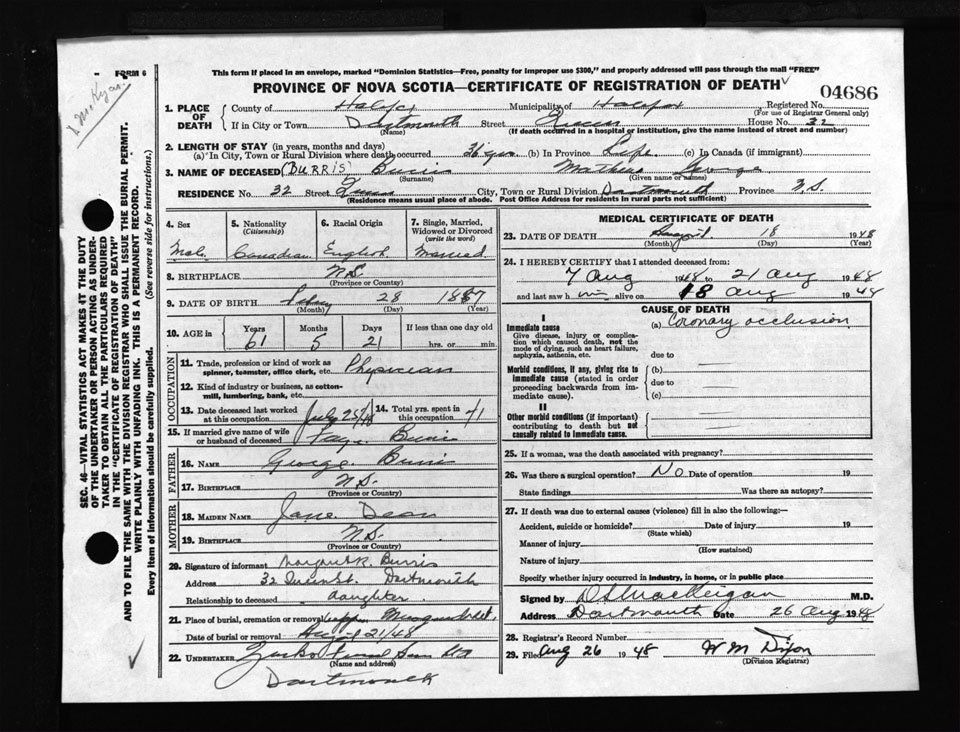 FORM 6
This form if placed in an envelope, marked "Dominion Statistics—Free, penalty for improper use $300," and properly addressed will pass through the mail "FREE"
PROVINCE OF NOVA SCOTIA—CERTIFICATE OF REGISTRATION OF DEATH
04686
1. PLACE OF DEATH
County of Halifax Municipality of Halifax Registered No.
(For use of Registrar General only)
If in City or Town Dartmouth Street Queen House No. 32
(Name) (If death occurred in a hospital or institution, give the name instead of street and number)
2. LENGTH OF STAY (in years, months and days)
(a) In City, Town or Rural Division where death occurred 36 yrs (b) In Province Life (c) In Canada (if immigrant)
3. NAME OF DECEASED (BURRIS) Burris George
(Surname) (Given name or names)
RESIDENCE No. 32 Street Queen City, Town or Rural Division Dartmouth Province N.S.
(Residence means usual place of abode. Post Office Address for residents in rural parts not sufficient)
4. Sex Male
5. Nationality (Citizenship) Canadian
6. Racial Origin English
7. Single, Married, Widowed or Divorced (write the word) Married
8. BIRTHPLACE N.S.
(Province or Country)
9. DATE OF BIRTH 28 1887
(Month) (Day) (Year)
10. AGE in Years Months Days If less than one day old
61 5 21 hrs. or min.
OCCUPATION
11. Trade, profession or kind of work as spinner, teamster, office clerk, etc. Physician
12. Kind of industry or business, as cotton-mill, lumbering, bank, etc.
13. Date deceased last worked at this occupation July 25/48
14. Total yrs. spent in this occupation 41
15. If married give name of wife or husband of deceased Faye Burris
FATHER
16. NAME George Burris
17. BIRTHPLACE N.S.
(Province or Country)
MOTHER
18. MAIDEN NAME Jane Dean
19. BIRTHPLACE N.S.
(Province or Country)
20. Signature of informant Margaret R. Burris
Address 32 Queen St. Dartmouth
Relationship to deceased daughter
21. Place of burial, cremation or removal Upper Musquodoboit,
Date of burial or removal Aug 21/48
22. UNDERTAKER Funeral Ltd
(Name and address)
Dartmouth
MEDICAL CERTIFICATE OF DEATH
23. DATE OF DEATH August 18 1948
(Month) (Day) (Year)
24. I HEREBY CERTIFY that I attended deceased from:
7 Aug 1948 to 21 Aug 1948
and last saw h im alive on 18 Aug 1948
CAUSE OF DEATH
I
Immediate cause
Give disease, injury or complication which caused death, not the mode of dying, such as heart failure, asphyxia, asthenia, etc.
(a) Coronary occlusion
due to
Morbid conditions, if any, giving rise to immediate cause (stated in order proceeding backwards from immediate cause).
(b)
due to
(c)
II
Other morbid conditions (if important) contributing to death but not causally related to immediate cause.
25. If a woman, was the death associated with pregnancy?
26. Was there a surgical operation? No Date of operation 19
State findings Was there an autopsy?
27. If death was due to external causes (violence) fill in also the following:—
Accident, suicide or homicide? Date of injury 19
(State which)
Manner of injury
(How sustained)
Nature of injury
Specify whether injury occurred in industry, in home, or in public place
Signed by M.D.
Address Dartmouth Date 26 Aug 1948
28. Registrar's Record Number
29. Filed Aug 26 1948 W M Dixon
(Division Registrar)
SEC. 46—VITAL STATISTICS ACT MAKES IT THE DUTY
OF THE UNDERTAKER OR PERSON ACTING AS UNDER-
TAKER TO OBTAIN ALL THE PARTICULARS REQUIRED
IN THE "CERTIFICATE OF REGISTRATION OF DEATH"
AND TO FILE THE SAME WITH THE DIVISION REGISTRAR WHO SHALL ISSUE THE BURIAL PERMIT.
WRITE PLAINLY WITH UNFADING INK. THIS IS A PERMANENT RECORD.
Every item of information should be carefully supplied. (See reverse side for instructions.)